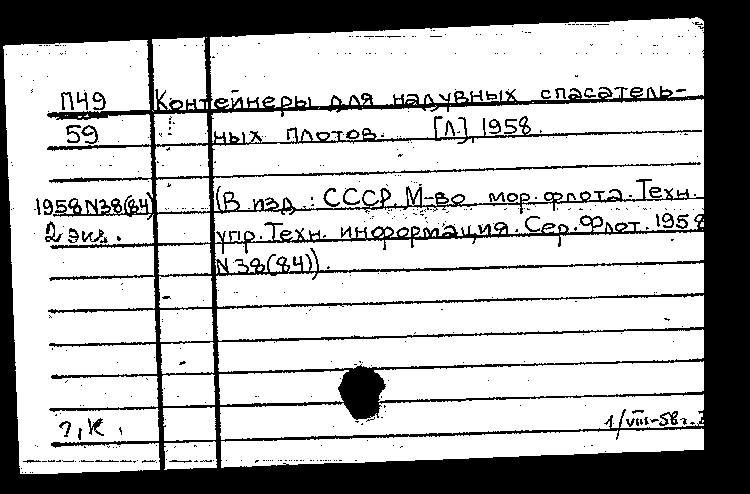 П49 Контейнеры для надувных спасатель-
59 ных плотов. [Л.], 1958.
1958 N38(84) (В изд.: СССР. М-во мор. флота. Техн.
2 экз. упр. Техн. информация. Сер. Флот. 1958
N 38(84)).
1/VIII-58г.